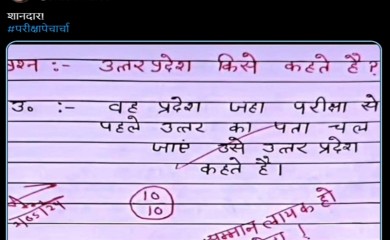 शानदार!
#परीक्षापेचर्चा
प्रश्न :- उत्तर प्रदेश किसे कहते है?
उ० :- वह प्रदेश जहा परीक्षा से
पहले उत्तर का पता चल
जाएं उसे उत्तर प्रदेश
कहते है।
10
10
सम्मान लायक हो